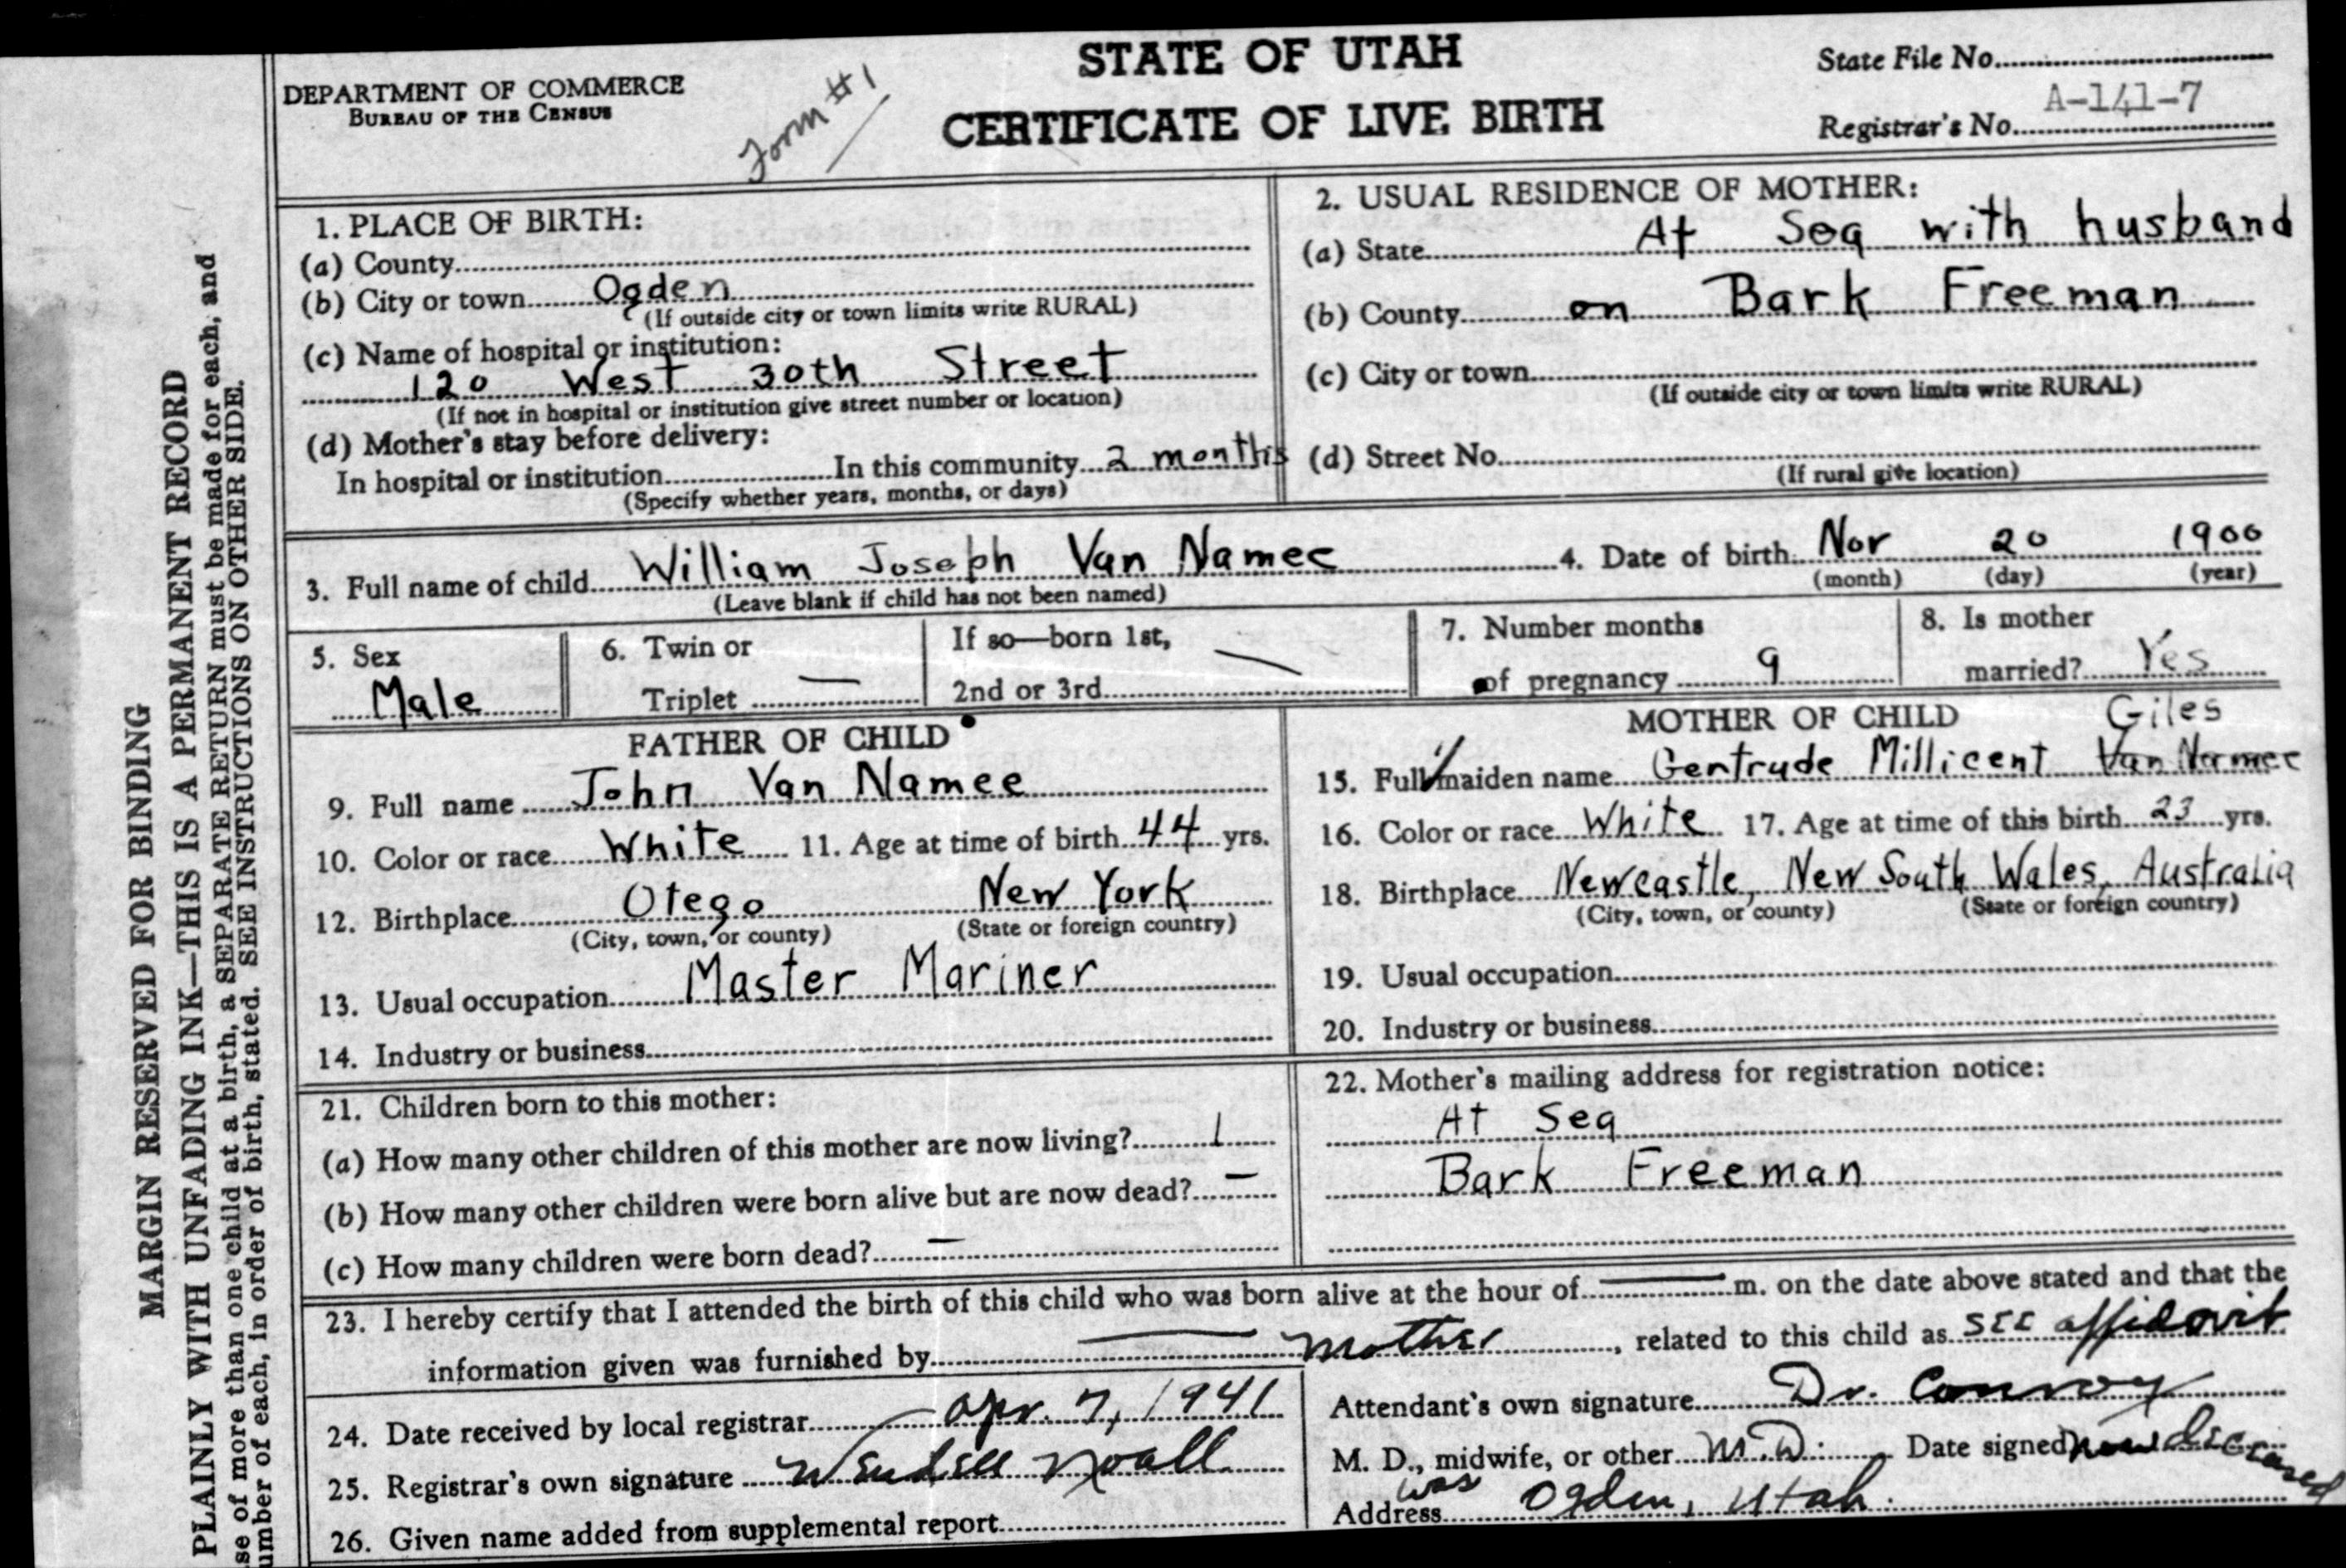 STATE OF UTAH
CERTIFICATE OF LIVE BIRTH
DEPARTMENT OF COMMERCE
BUREAU OF THE CENSUS
Form #1
State File No.
Registrar's No. A-141-7
MARGIN RESERVED FOR BINDING
PLAINLY WITH UNFADING INK—THIS IS A PERMANENT RECORD
se of more than one child at a birth, a SEPARATE RETURN must be made for each, and
umber of each, in order of birth, stated. SEE INSTRUCTIONS ON OTHER SIDE.
1. PLACE OF BIRTH:
(a) County
(b) City or town Ogden
(If outside city or town limits write RURAL)
(c) Name of hospital or institution:
120 West 30th Street
(If not in hospital or institution give street number or location)
(d) Mother's stay before delivery:
In hospital or institution In this community 2 months
(Specify whether years, months, or days)
2. USUAL RESIDENCE OF MOTHER:
(a) State At Sea with husband
(b) County on Bark Freeman
(c) City or town
(If outside city or town limits write RURAL)
(d) Street No.
(If rural give location)
3. Full name of child William Joseph Van Namee
(Leave blank if child has not been named)
4. Date of birth Nov 20 1900
(month) (day) (year)
5. Sex
Male
6. Twin or
Triplet —
If so—born 1st, —
2nd or 3rd
7. Number months
of pregnancy 9
8. Is mother
married? Yes
FATHER OF CHILD
9. Full name John Van Namee
10. Color or race White 11. Age at time of birth 44 yrs.
12. Birthplace Otego New York
(City, town, or county) (State or foreign country)
13. Usual occupation Master Mariner
14. Industry or business
MOTHER OF CHILD Giles
15. Full maiden name Gertrude Millicent Van Namee
16. Color or race White 17. Age at time of this birth 23 yrs.
18. Birthplace Newcastle, New South Wales, Australia
(City, town, or county) (State or foreign country)
19. Usual occupation
20. Industry or business
21. Children born to this mother:
(a) How many other children of this mother are now living? 1
(b) How many other children were born alive but are now dead? —
(c) How many children were born dead? —
22. Mother's mailing address for registration notice:
At Sea
Bark Freeman
23. I hereby certify that I attended the birth of this child who was born alive at the hour of — m. on the date above stated and that the
information given was furnished by — mother, related to this child as see affidavit
24. Date received by local registrar Apr. 7, 1941
25. Registrar's own signature Wendell Noall
26. Given name added from supplemental report
Attendant's own signature Dr. Conroy
M. D., midwife, or other M.D. Date signed now deceased
was
Address Ogden, Utah.